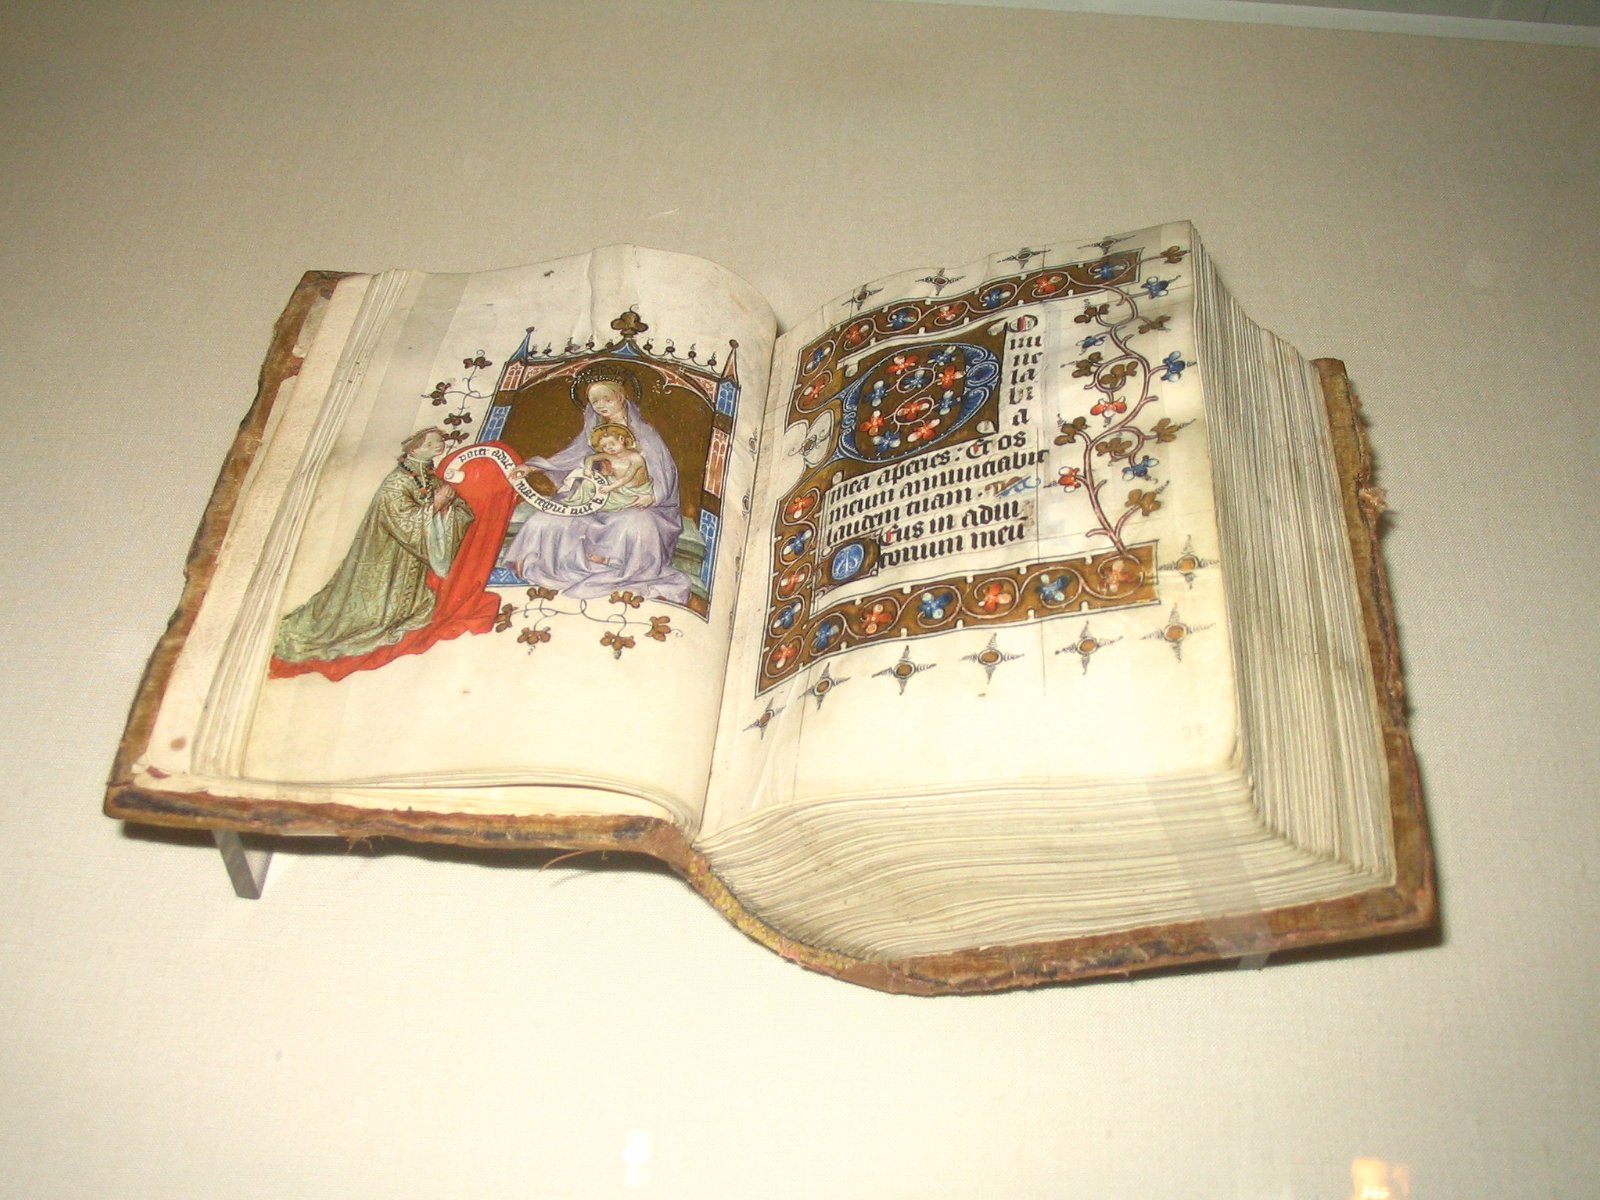 Domi
ne
la
bi
a
mea aperies: Et os
meum annunciabit
laudem tuam.
Deus in adiu
torium meu